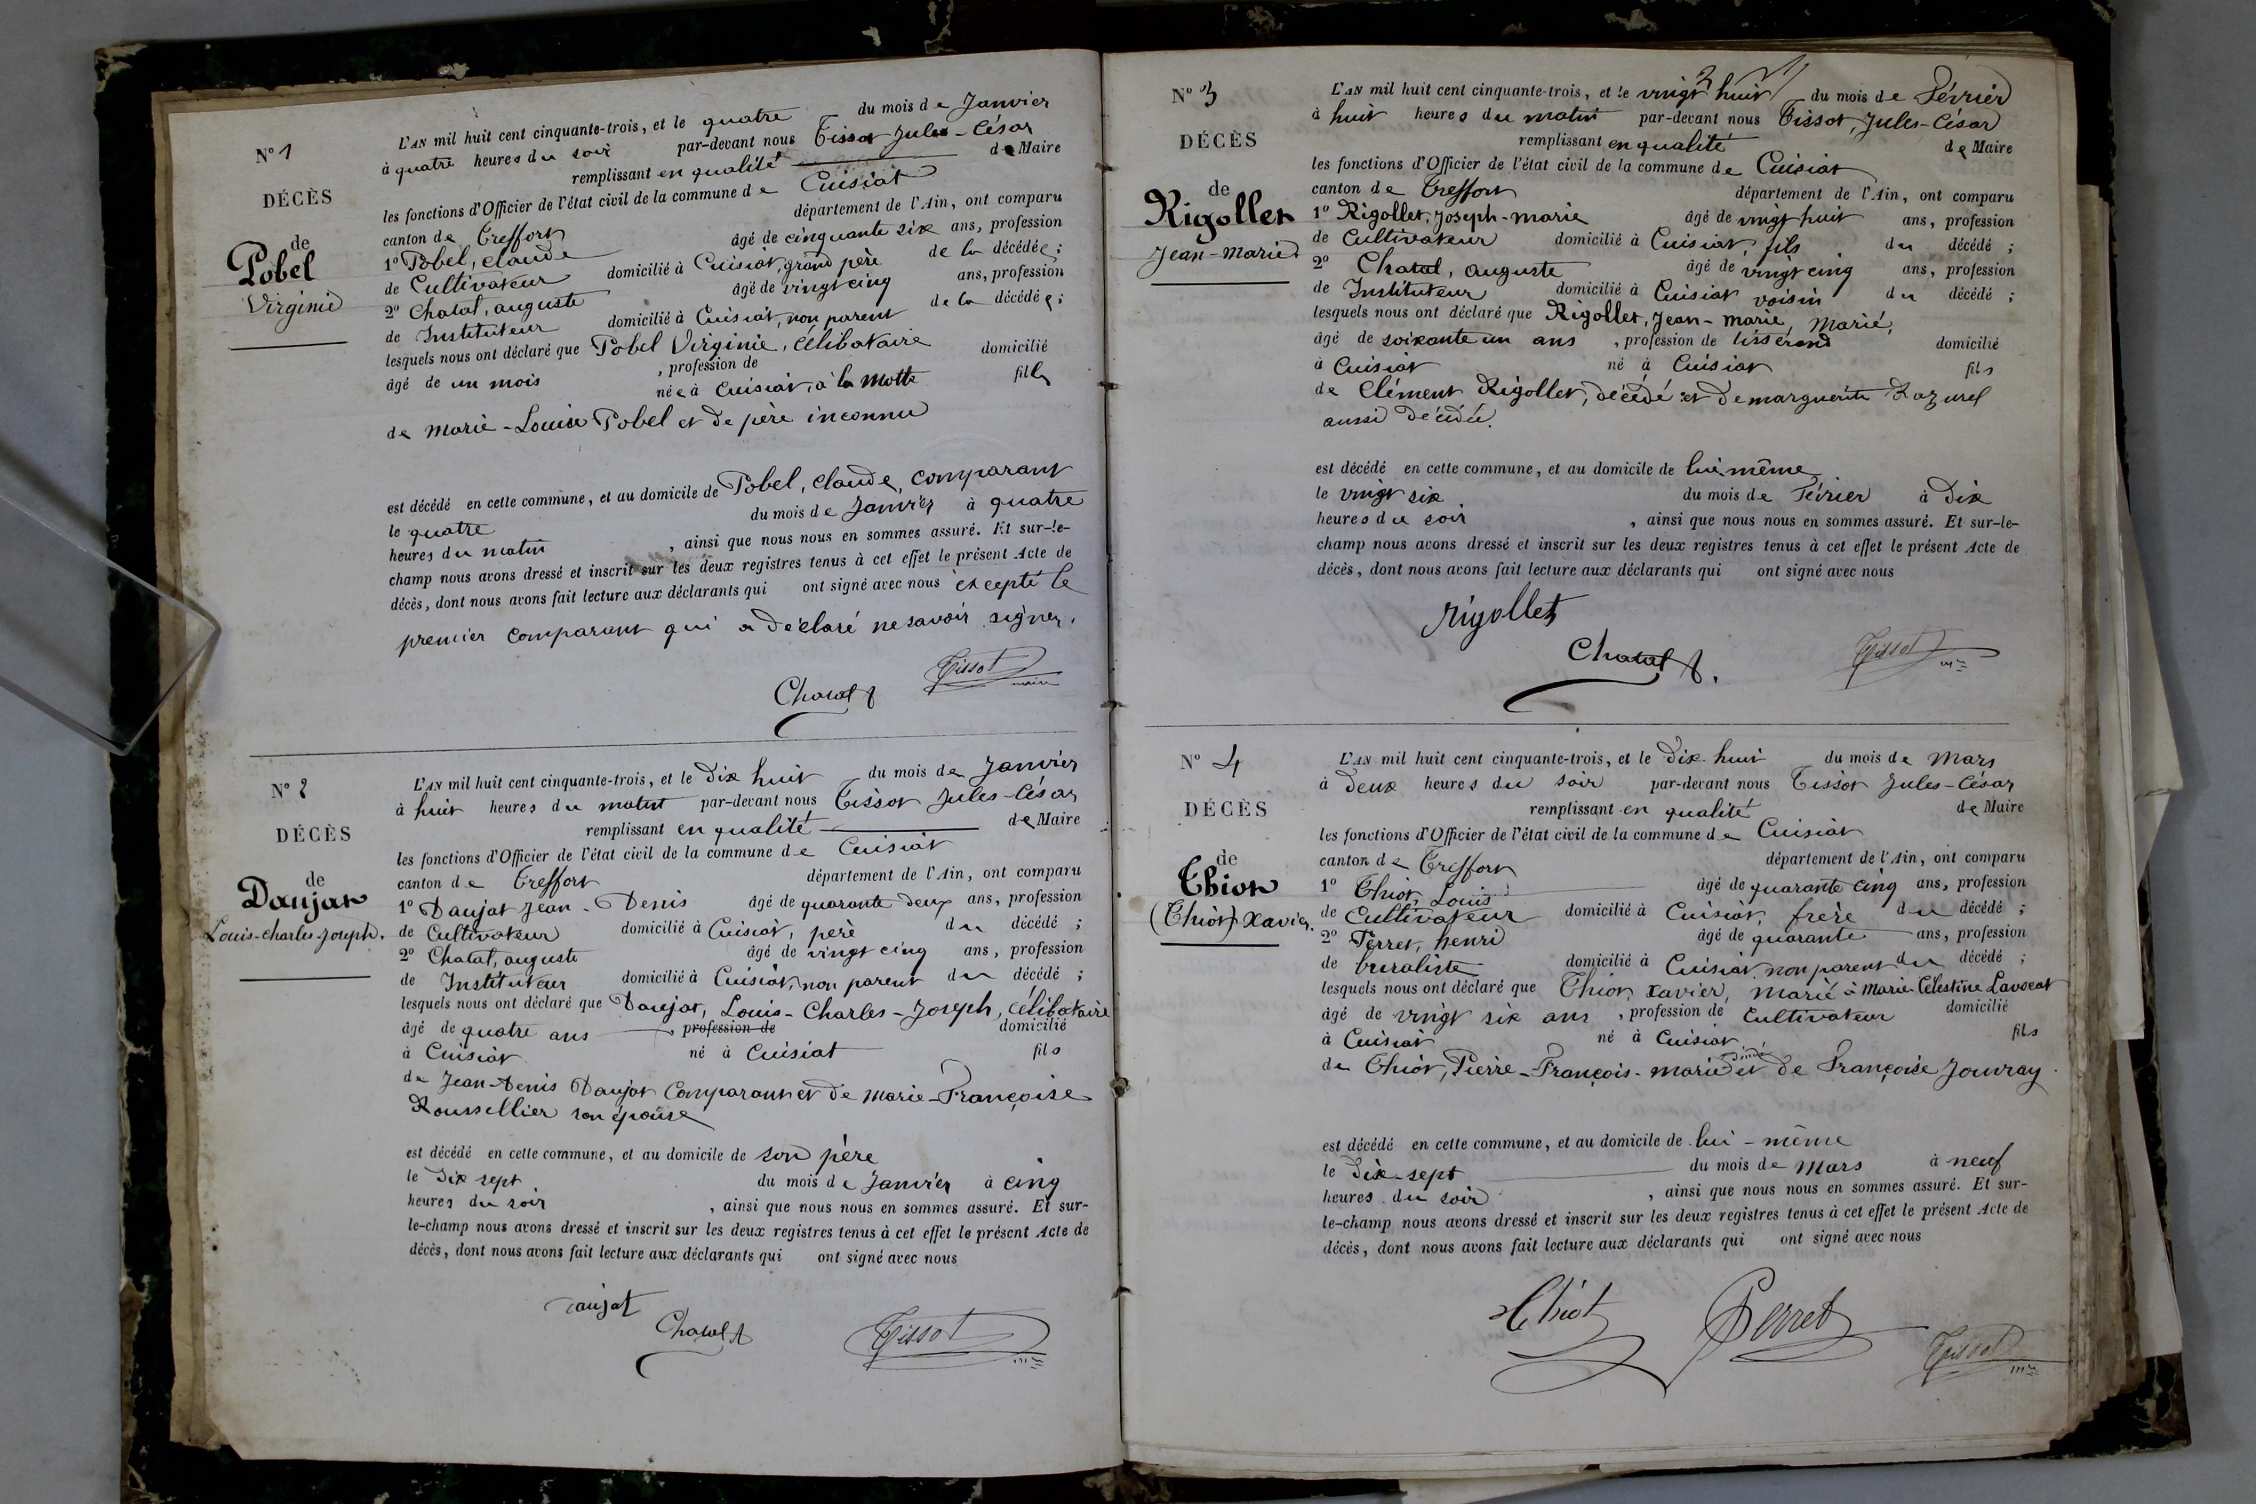 N° 1
DÉCÈS
de
Pobel
Virginie
L'AN mil huit cent cinquante-trois, et le quatre du mois de Janvier
à quatre heures du soir par-devant nous Tissot Jules-César
remplissant en qualité de Maire
les fonctions d'Officier de l'état civil de la commune de Cuisiat
canton de Treffort département de l'Ain, ont comparu
1° Pobel, claude âgé de cinquante six ans, profession
de Cultivateur domicilié à Cuisiat, grand père de la décédée;
2° Chatal, auguste âgé de vingt cinq ans, profession
de Instituteur domicilié à Cuisiat, non parent de la décédée;
lesquels nous ont déclaré que Pobel Virginie, Célibataire
âgé de un mois , profession de domicilié
née à Cuisiat, à la Motte fille
de Marie-Louise Pobel et de père inconnu
est décédé en cette commune, et au domicile de Pobel, claude, comparant
le quatre du mois de Janvier à quatre
heures du matin , ainsi que nous nous en sommes assuré. Et sur-le-
champ nous avons dressé et inscrit sur les deux registres tenus à cet effet le présent Acte de
décès, dont nous avons fait lecture aux déclarants qui ont signé avec nous excepté le
premier comparant qui a déclaré ne savoir signer.
Tissot
maire
Chatal A
N° 2
DÉCÈS
de
Daujat
Louis-Charles-Joseph.
L'AN mil huit cent cinquante-trois, et le Dix huit du mois de Janvier
à huit heures du matin par-devant nous Tissot Jules-César
remplissant en qualité de Maire
les fonctions d'Officier de l'état civil de la commune de Cuisiat
canton de Treffort département de l'Ain, ont comparu
1° Daujat Jean-Denis âgé de quarante deux ans, profession
de Cultivateur domicilié à Cuisiat, père du décédé ;
2° Chatal, auguste âgé de vingt cinq ans, profession
de Instituteur domicilié à Cuisiat, non parent du décédé ;
lesquels nous ont déclaré que Daujat, Louis-Charles-Joseph, célibataire
âgé de quatre ans , profession de domicilié
à Cuisiat né à Cuisiat fils
de Jean-Denis Daujat Comparant et de Marie-Françoise
Roussellier son épouse
est décédé en cette commune, et au domicile de son père
le Dix sept du mois de Janvier à cinq
heures du soir , ainsi que nous nous en sommes assuré. Et sur-
le-champ nous avons dressé et inscrit sur les deux registres tenus à cet effet le présent Acte de
décès, dont nous avons fait lecture aux déclarants qui ont signé avec nous
Daujat
Chatal A
Tissot
mre
N° 3
DÉCÈS
de
Rigollet
Jean-Marie
L'AN mil huit cent cinquante-trois, et le vingt huit du mois de Février
à huit heures du matin par-devant nous Tissot, Jules-César
remplissant en qualité de Maire
les fonctions d'Officier de l'état civil de la commune de Cuisiat
canton de Treffort département de l'Ain, ont comparu
1° Rigollet, Joseph-marie âgé de vingt huit ans, profession
de Cultivateur domicilié à Cuisiat, fils du décédé ;
2° Chatal, auguste âgé de vingt cinq ans, profession
de Instituteur domicilié à Cuisiat voisin du décédé ;
lesquels nous ont déclaré que Rigollet, Jean-marie, Marié,
âgé de soixante un ans , profession de tisserand domicilié
à Cuisiat né à Cuisiat fils
de Clément Rigollet, décédé et de marguerite
aussi décédée.
est décédé en cette commune, et au domicile de lui même
le vingt six du mois de Février à Dix
heures du soir , ainsi que nous nous en sommes assuré. Et sur-le-
champ nous avons dressé et inscrit sur les deux registres tenus à cet effet le présent Acte de
décès, dont nous avons fait lecture aux déclarants qui ont signé avec nous
Rigollet
Chatal A.
Tissot
mre
N° 4
DÉCÈS
de
Thion
(Thiot) Xavier.
L'AN mil huit cent cinquante-trois, et le Dix-huit du mois de Mars
à Deux heures du soir par-devant nous Tissot Jules-César
remplissant en qualité de Maire
les fonctions d'Officier de l'état civil de la commune de Cuisiat
canton de Treffort département de l'Ain, ont comparu
1° Thiot, Louis âgé de quarante cinq ans, profession
de Cultivateur domicilié à Cuisiat, frère du décédé ;
2° Perret, henri âgé de quarante ans, profession
de buraliste domicilié à Cuisiat non parent du décédé ;
lesquels nous ont déclaré que Thiot, Xavier, marié à Marie-Célestine Lavocat
âgé de vingt six ans , profession de Cultivateur domicilié
à Cuisiat né à Cuisiat fils
de Thiot, Pierre-François-marie et de Françoise Jouvray
est décédé en cette commune, et au domicile de lui-même
le Dix-sept du mois de Mars à neuf
heures du soir , ainsi que nous nous en sommes assuré. Et sur-
le-champ nous avons dressé et inscrit sur les deux registres tenus à cet effet le présent Acte de
décès, dont nous avons fait lecture aux déclarants qui ont signé avec nous
Thiot
Perret
Tissot
mre